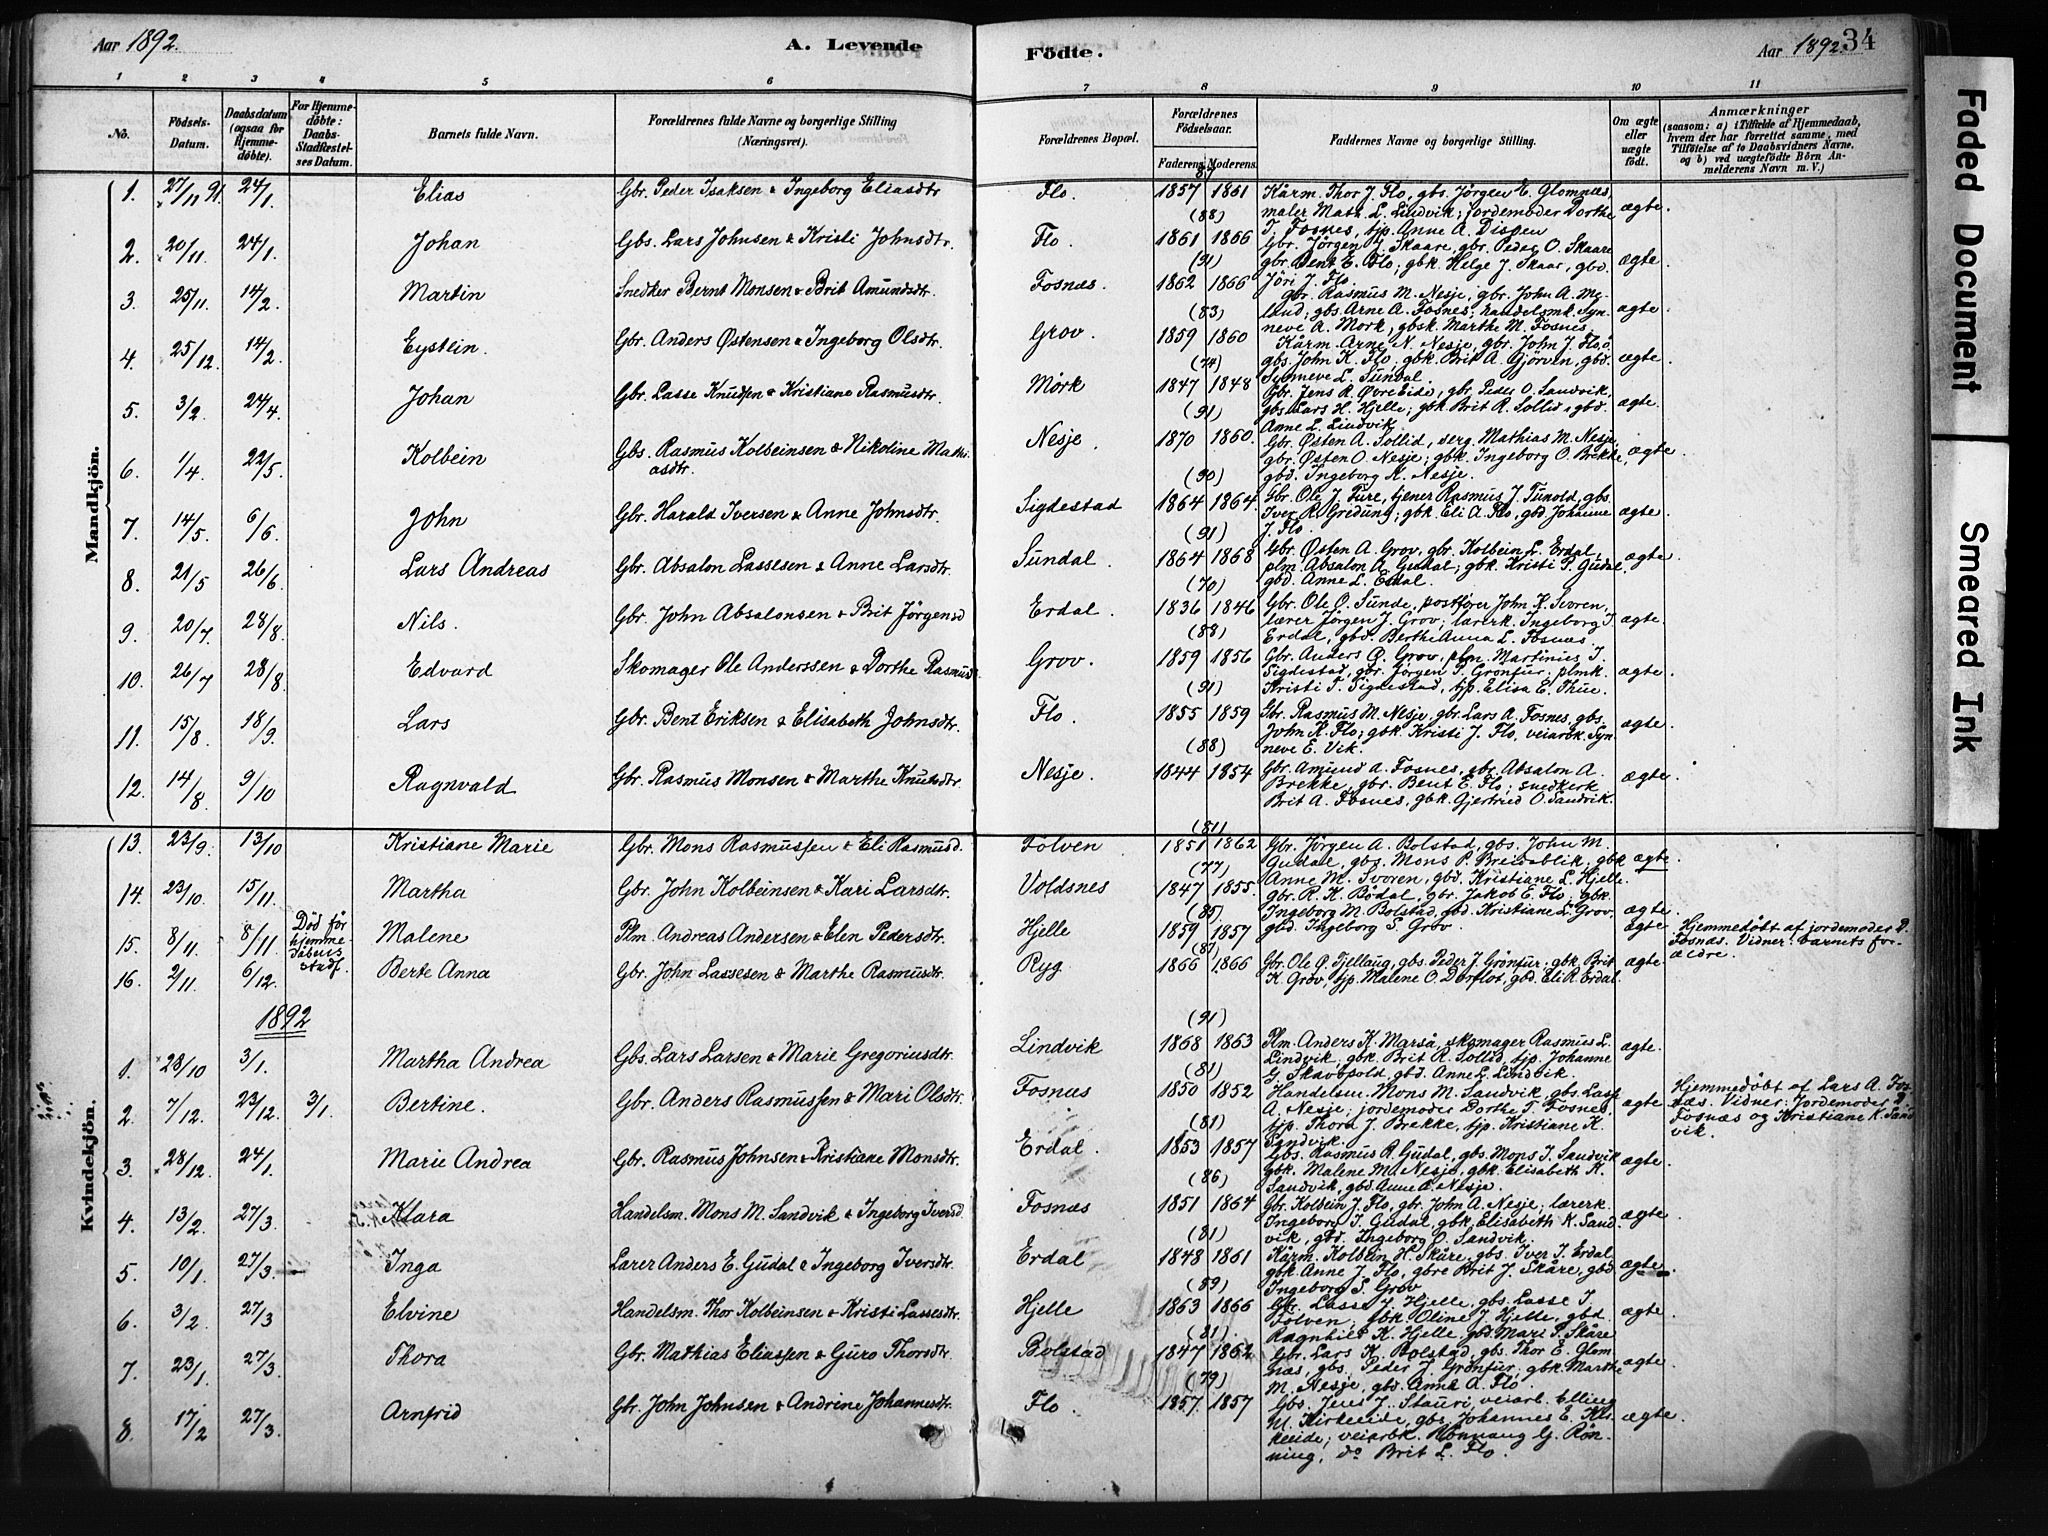 Aar 1892. A. Levende Födte. Aar 1892. 34
1 2 3 4 5 6 7 8 9 10 11
Nö. Födsels-Datum. Daabsdatum (ogsaa for Hjemmedöbte). For Hjemmedöbte: Daabs-Stadfæstelses Datum. Barnets fulde Navn. Forældrenes fulde Navne og borgerlige Stilling (Næringsvei). Forældrenes Bopæl. Forældrenes Födselsaar. Faderens Moderens. Faddernes Navne og borgerlige Stilling. Om ægte eller uægte födt. Anmærkninger (saasom: a) i Tilfælde af Hjemmedaab, hvem der har forrettet samme, med Tilföielse af to Daabsvidners Navne, og b) ved uægtefödte Börn Anmelderens Navn m. V.)
Mandkjön.
1. 27/11 91. 24/1. Elias Gbr. Peder Isaksen & Ingeborg Eliasdtr Flo. (87) 1857 1861 Kårm. Thor J. Flo, gbs. Jörgen E. Glomnes,
maler Mats L. Lindvik; jordemoder Dorthe ægte.
T. Fosnes, tjp. Anne A. Dispen
2. 20/11. 24/1. Johan Gbs. Lars Johnsen & Kristi Johnsdtr. Flo. (88) 1861 1866 Gbr. Jörgen J. Skaare, gbr. Peder O. Skaare
gbr. Bent E. Flo; gbk. Helge J. Skaar, gbd. ægte
Jöri J. Flo.
3. 25/11. 14/2. Martin Snedker Bernt Monsen & Brit Amundsdtr. Fosnæs. (91) 1862 1866
gbr. Rasmus M. Nesje, gbr. John A. Me-
lund, gbs. Arne A. Fosnes; handelsmk. Syn- ægte.
neve A. Mork, gbsk. Marthe M. Fosnes.
4. 25/12. 14/2. Eystein. Gbr. Anders Østensen & Ingeborg Olsdtr. Grov. (83) 1859 1860
Kårm. Arne N. Nesje, gbr. John J. Flo,
gbs. John K. Flo, gbk. Brit A. Gjörven, gbd. ægte.
Synneve L. Sundal.
5. 3/2. 24/4. Johan Gbr. Lasse Knudsen & Kristiane Rasmusdtr. Mörk (74) 1847 1848
Gbr. Jens R. Øvreeide, gbr. Peder O. Sandvik,
gbs. Lars H. Hjelle; gbk. Brit R. Sollid, gbd. ægte.
Anne L. Lindvik.
6. 1/4. 22/5. Kolbein Gbs. Rasmus Kolbeinsen & Nikoline Mathi-
asdtr. Nesje. (91) 1870 1860. Gbr. Østen A. Sollid, serg. Mathias M. Nesje,
gbr. Østen O. Nesje; gbk. Ingeborg O. Brekke, ægte.
gbd. Ingeborg K. Nesje.
7. 14/5. 6/6. John Gbr. Harald Iversen & Anne Johnsdtr. Sigdestad (90) 1864 1864. Gbr. Ole J. Fure, tjener Rasmus J. Tunold, gbs.
Iver R. Gredung; gbk. Eli A. Flo, gbd. Johanne ægte.
J. Flo
8. 21/5 26/6. Lars Andreas Gbr. Absalon Lassesen & Anne Larsdtr. Sundal. (91) 1864 1868 Gbr. Østen A. Grov, gbr. Kolbein L. Erdal, ægte.
plm. Absalon A. Gudal; gbk. Kristi P. Gudal.
gbd. Anne L. Erdal.
9. 20/7. 28/8. Nils. Gbr. John Absalonsen & Brit Jörgensd Erdal. (70) 1836 1846 Gbr. Ole O. Sunde, postförer John K. Svoren,
lærer Jörgen J. Grov; lærerk. Ingeborg I. ægte.
Erdal, gbd. Berthe Anna L. Fosnæs.
10. 26/7 28/8. Edvard Skomager Ole Anderssen & Dorthe Rasmusd Grov. (88) 1859 1856 Gbr. Anders O. Grov, plm. Martinus I.
Sigdestad, gbr. Jörgen T. Grönfur; plmk. ægte.
Kristi T. Sigdestad, tjp. Elisa E. Thue.
11. 15/8. 18/9. Lars Gbr. Bent Eriksen & Elisabeth Johnsdtr. Flo. (91) 1855 1859 Gbr. Rasmus M. Nesje, gbr. Lars A. Fosnes, gbs.
John K. Flo; gbk. Kristi J. Flo, veiarbk. Syn- ægte.
neve E. Vik.
12. 14/8. 9/10 Ragnvald Gbr. Rasmus Monsen & Marthe Knutsdtr Nesje. (88) 1844 1854 Gbr. Amund A. Fosnes, gbr. Absalon A.
Brekke, gbr. Bent E. Flo; snedkerk. ægte.
Brit A. Fosnes, gbk. Gjertrud O. Sandvik.
Kvindekjön.
13. 23/9. 13/10 Kristiane Marie Gbr. Mons Rasmussen & Eli Rasmusd. Fölven (81) 1851 1862 Gbr. Jörgen A. Bolstad, gbs. John M.
Gudal, gbs. Mons P. Breidablik, gbk ægte
Anne M. Svoren, gbd. Kristiane L. Hjelle.
14. 23/10. 15/11. Martha Gbr. John Kolbeinsen & Kari Larsdtr. Voldsnes (77) 1847 1855. gbr. R. K. Bödal, gbr. Jakob E. Flo; gbk.
Ingeborg M. Bolstad, gbd. Kristiane L. Grov, ægte.
gbd. Ingeborg S. Grov.
15. 8/11. 8/11 Död för hjemmedåbens stadf. Malene Plm. Andreas Andersen & Elen Pedersdtr. Hjelle (85) 1859 1857 ægte Hjemmedöbt af jordemoder D.
Fosnæs. Vidner: barnets for-
ældre.
16. 2/11. 6/12. Berte Anna Gbr. John Lassesen & Marthe Rasmusdtr. Ryg (87) 1866 1866 Gbr. Ole O. Tjellaug, gbs. Peder J. Grönfur; gbk. Brit ægte
K. Grov, tjp. Malene O. Dorflot, gbd. Eli R. Erdal.
1892
1. 23/10 3/1. Martha Andrea Gbs. Lars Larsen & Marie Gregoriusdtr. Lindvik (91) 1868 1863 Plm. Anders K. Marså, skomager Rasmus L.
Lindvik; gbk. Brit R. Sollid, tjp. Johanne ægte.
G. Skavöpold, gbd. Anne L. Lindvik.
2. 7/12. 23/12. 3/1. Bertine. Gbr. Anders Rasmussen & Mari Olsdtr. Fosnæs (81) 1850 1852 Handelsm. Mons M. Sandvik, gbs. Lasse
A. Nesje; jordemoder Dorthe T. Fosnes, ægte.
tjp. Thora J. Brekke, tjp. Kristiane K.
Sandvik.
Hjemmedöbt af Lars A. Fos-
næs. Vidner: Jordemoder D.
Fosnæs og Kristiane K. Sand
vik.
3. 28/12. 24/1. Marie Andrea Gbr. Rasmus Johnsen & Kristiane Monsdtr. Erdal. (81) 1853 1857 Gbs. Rasmus R. Gudal, gbs. Mons I. Sandvik
gbk. Malene M. Nesje, gbk. Elisabeth K. ægte.
Sandvik, gbd. Anne A. Nesje.
4. 13/2. 27/3. Klara Handelsm. Mons M. Sandvik & Ingeborg Iversd. Fosnæs (86) 1851 1864 Gbr. Kolbein J. Flo, gbr. John A. Nesje, lærerk.
Ingeborg I. Gudal, gbk. Elisabeth K. Sand- ægte.
vik, gbd. Ingeborg O. Sandvik.
5. 10/1. 27/3. Inga Lærer Anders E. Gudal & Ingeborg Iversdtr. Erdal (81) 1848 1861 Kårm. Kolbein H. Skåre, gbs. Iver I. Erdal,
gbk. Anne J. Flo, gbre Brit J. Skåre, gbd ægte.
Ingeborg S. Grov
6. 3/2. 27/3 Elvine Handelsm. Thor Kolbeinsen & Kristi Lassesdtr. Hjelle (89) 1863 1866 Gbr. Lasse J. Hjelle, gbs. Lasse I.
Fölven; gbk. Oline J. Hjelle, gbd. ægte.
Ragnhild K. Hjelle, gbd. Mari P. Skåre
7. 23/1. 27/3. Thora Gbr. Mathias Eliassen & Guro Thorsdtr. Bolstad (81). 1847 1862 Gbr. Lars K. Bolstad, gbs. Thor E. Glom-
næs, gbs. Peder J. Grönfur; gbk. Marthe ægte.
M. Nesje, gbd. Anne A. Flo.
8. 17/2 27/3. Arnfrid Gbr. John Johnsen & Andrine Johannesdtr. Flo. (79) 1857 1857 Gbs. Jens J. Stauri, veiarb. Elling
M. Kirkeeide, gbs. Johannes E. Kir- ægte.
keeide; veiarbk. Rönnaug G. Rön-
ning, do Brit L. Flo.
Faded Document
Smeared Ink